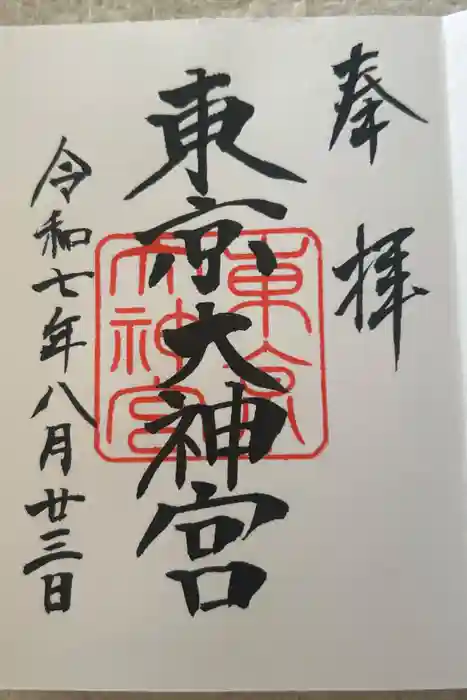 奉拝
東京大神宮
東京大神宮
令和七年八月廿三日